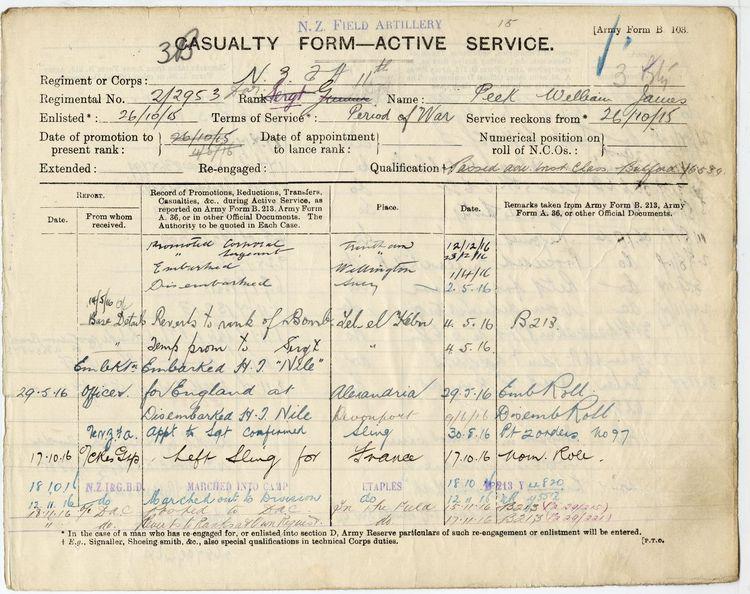 N.Z. FIELD ARTILLERY 15 [Army Form B 103.
3B CASUALTY FORM—ACTIVE SERVICE.
Regiment or Corps: N. Z. F A 11th
Regimental No. 2/2953 Rank Sergt Gunner Name: Peek William James
Enlisted*: 26/10/15 Terms of Service*: Period of War Service reckons from* 26/10/15
Date of promotion to present rank: 26/10/15 Date of appointment to lance rank: Numerical position on roll of N.C.Os:
Extended: Re-engaged: Qualification† Passed
REPORT.
Date. From whom received. Record of Promotions, Reductions, Transfers, Casualties, &c., during Active Service, as reported on Army Form B. 213, Army Form A. 36, or in other Official Documents. The Authority to be quoted in Each Case. Place. Date. Remarks taken from Army Form B. 213, Army Form A. 36, or other Official Documents.
Promoted Corporal Trentham 12/12/16
" Sergeant " 23/12/16
Embarked Wellington 1/4/16
Disembarked Suez 2.5.16
Base Details Reverts to rank of Bomb. Tel el Kebir 4.5.16 B213
" Temp prom to Sergt " 4.5.16
Embktn Embarked H.T "Nile"
29.5.16 Officer for England at Alexandria 29.5.16 Emb Roll
Disembarked H.T Nile Devonport Disemb Roll
NZFA. Appt to Sgt confirmed Sling 30.8.16 Pt 2 orders No 97.
17.10.16 Left Sling for France 17.10.16 Nom. Role.
18 10 16 N.Z.I&G.B.D. MARCHED INTO CAMP ETAPLES 18.10 B213
12 11 16 do Marched out to Division do 12 11 16
18.11.16 DAC Posted to DAC In the Field 15.11.16 B213
" do. do. 17.11.16 B213
* In the case of a man who has re-engaged for, or enlisted into section D, Army Reserve particulars of such re-engagement or enlistment will be entered.
† E.g., Signaller, Shoeing smith, &c., also special qualifications in technical Corps duties. [P.T.O.